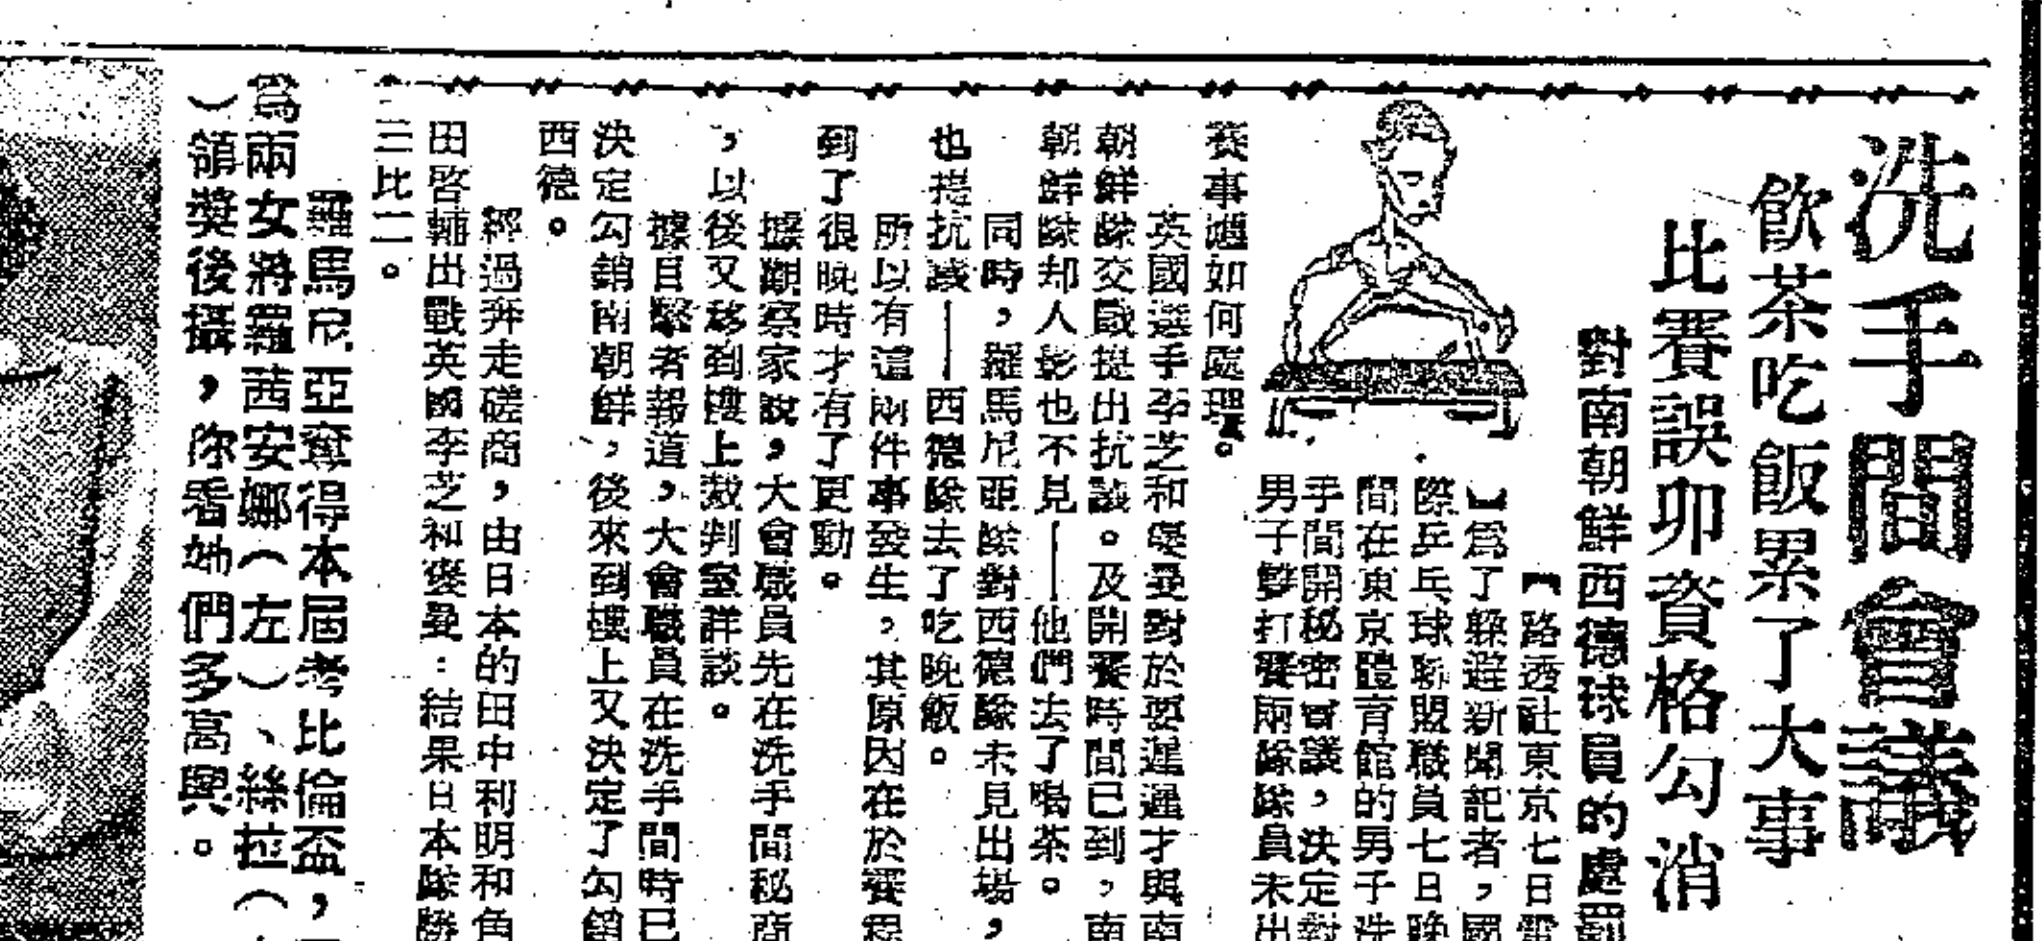 洗手間會議
飲茶吃飯累了大事
比賽誤卯資格勾消
對南朝鮮西德球員的處罰
【路透社東京七日電
】爲了躱避新聞記者，國
際乒乓球聯盟職員七日晚
間在東京體育館的男子洗
手間開秘密會議，決定對
男子雙打賽兩隊隊員未出
賽事應如何處理。
英國選手李芝和曼對於要遲遲才與南
朝鮮隊交戰提出抗議。及開賽時間已到，南
朝鮮隊却人影也不見——他們去了喝茶。
同時，羅馬尼亞隊對西德隊未見出場，
也提抗議——西德隊去了吃晚飯。
所以有這兩件事發生，其原因在於賽程
到了很晚時才有了更動。
據觀察家說，大會職員先在洗手間秘商
，以後又移到樓上裁判室詳談。
據目擊者報道，大會職員在洗手間時已
決定勾銷南朝鮮，後來到樓上又決定了勾銷
西德。
經過奔走磋商，由日本的田中利明和角
田啓輔出戰英國李芝和曼：結果日本隊勝
三比二。
羅馬尼亞奪得本屆考比倫盃，
爲兩女將羅茜安娜（左）、絲拉（
）領獎後攝，你看她們多高興。